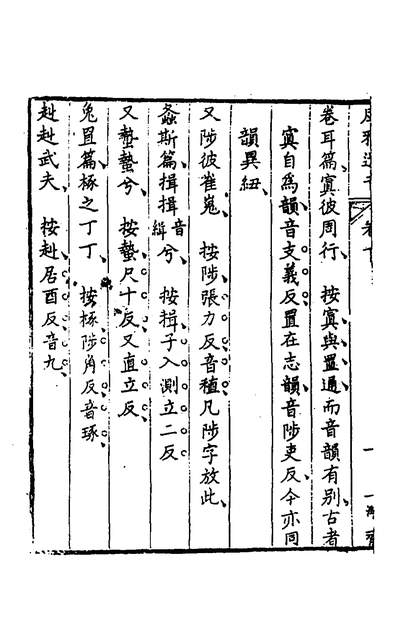 卷耳篇寘彼周行　按寘與置通而音韻有别古者
寘自爲韻音支義反置在志韻音陟吏反今亦同
韻異紐
又陟彼崔嵬　按陟張力反音稙凡陟字放此
螽斯篇揖揖音緝兮　按揖子入測立二反
又蟄蟄兮　按蟄尺十反又直立反
兔罝篇椓之丁丁　按椓陟角反音琢
赳赳武夫　按赳居酉反音九